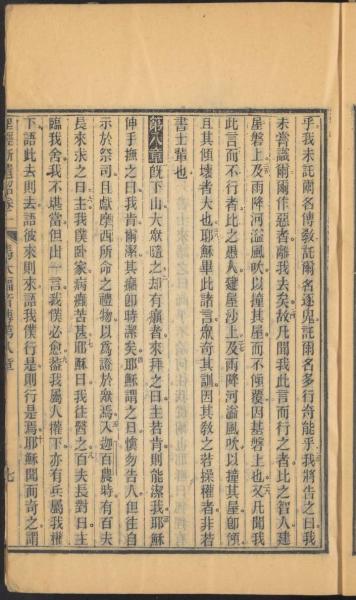 乎我未託爾名傳敎託爾名逐鬼託爾名多行奇能乎我將告之曰我
未嘗識爾爾作惡者離我去矣故凡聞我此言而行之者比之智人建
屋磐上及雨降河溢風吹以撞其屋而不傾覆因基磐上也又凡聞我
此言而不行者比之愚人建屋沙上及雨降河溢風吹以撞其屋卽傾
且其傾壞者大也耶穌畢此諸言眾奇其訓因其敎之若操權者非若
書士輩也
第八章旣下山大眾隨之却有癩者來拜之曰主若肯則能潔我耶穌
伸手撫之曰我肯爾潔其癩卽時潔矣耶穌謂之曰愼勿告人但往自
示於祭司且獻摩西所命之禮物以爲證於眾焉入迦百農時有百夫
長來求之曰主我僕臥家病癱苦甚耶穌曰我往醫之百夫長對曰主
臨我舍我不堪當但出一言我僕必愈蓋我屬人權下亦有兵屬我權
下語此去則去語彼來則來語我僕行是則行是焉耶穌聞而奇之謂
馬太福音傳第八章
七